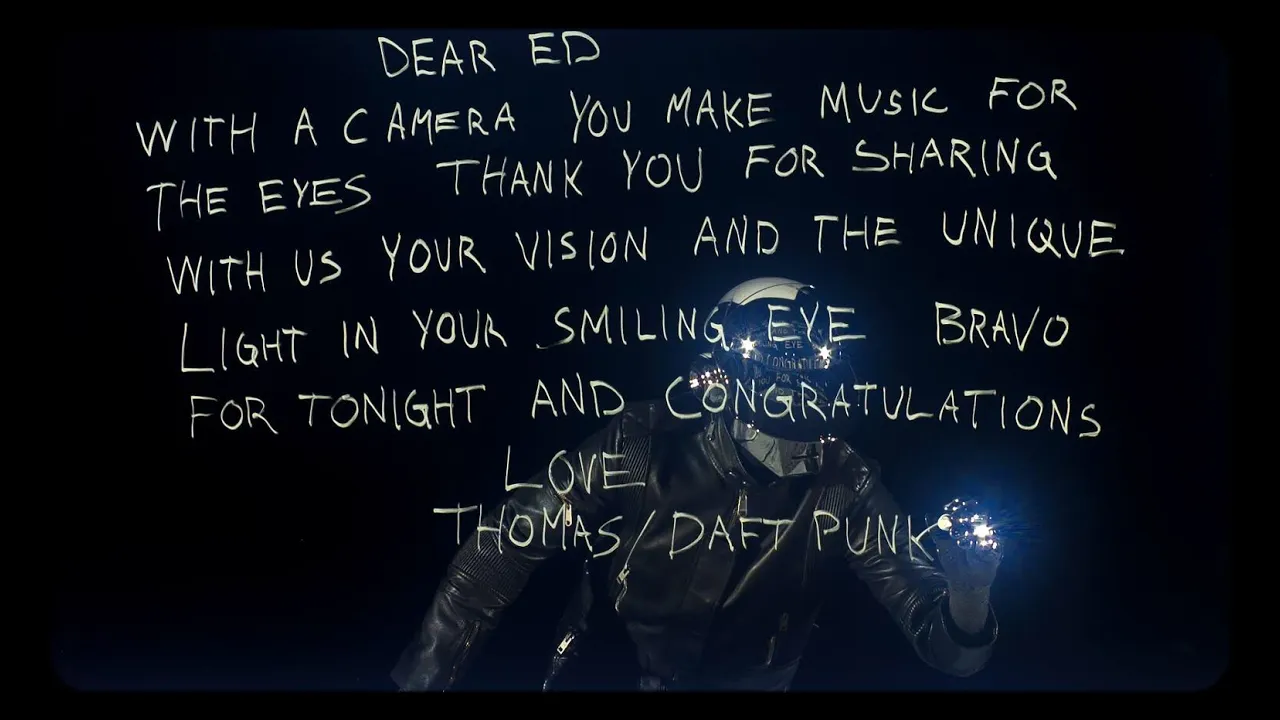 DEAR ED
WITH A CAMERA YOU MAKE MUSIC FOR
THE EYES THANK YOU FOR SHARING
WITH US YOUR VISION AND THE UNIQUE
LIGHT IN YOUR SMILING EYE BRAVO
FOR TONIGHT AND CONGRATULATIONS
LOVE
THOMAS/DAFT PUNK